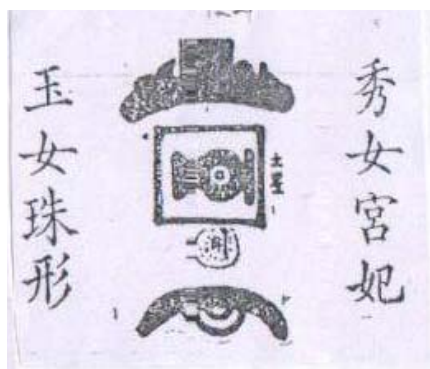 秀女宮妃
土星
玉女珠形